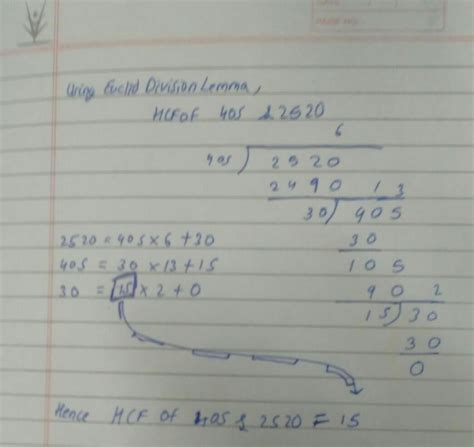 Using Euclid Division Lemma,
HCF of 405 & 2520
6
405) 2520
2490 13
30) 405
2520 = 405 × 6 + 30
30
405 = 30 × 13 + 15
105
30 = 15 × 2 + 0
90 2
15) 30
30
0
Hence HCF of 405 & 2520 = 15